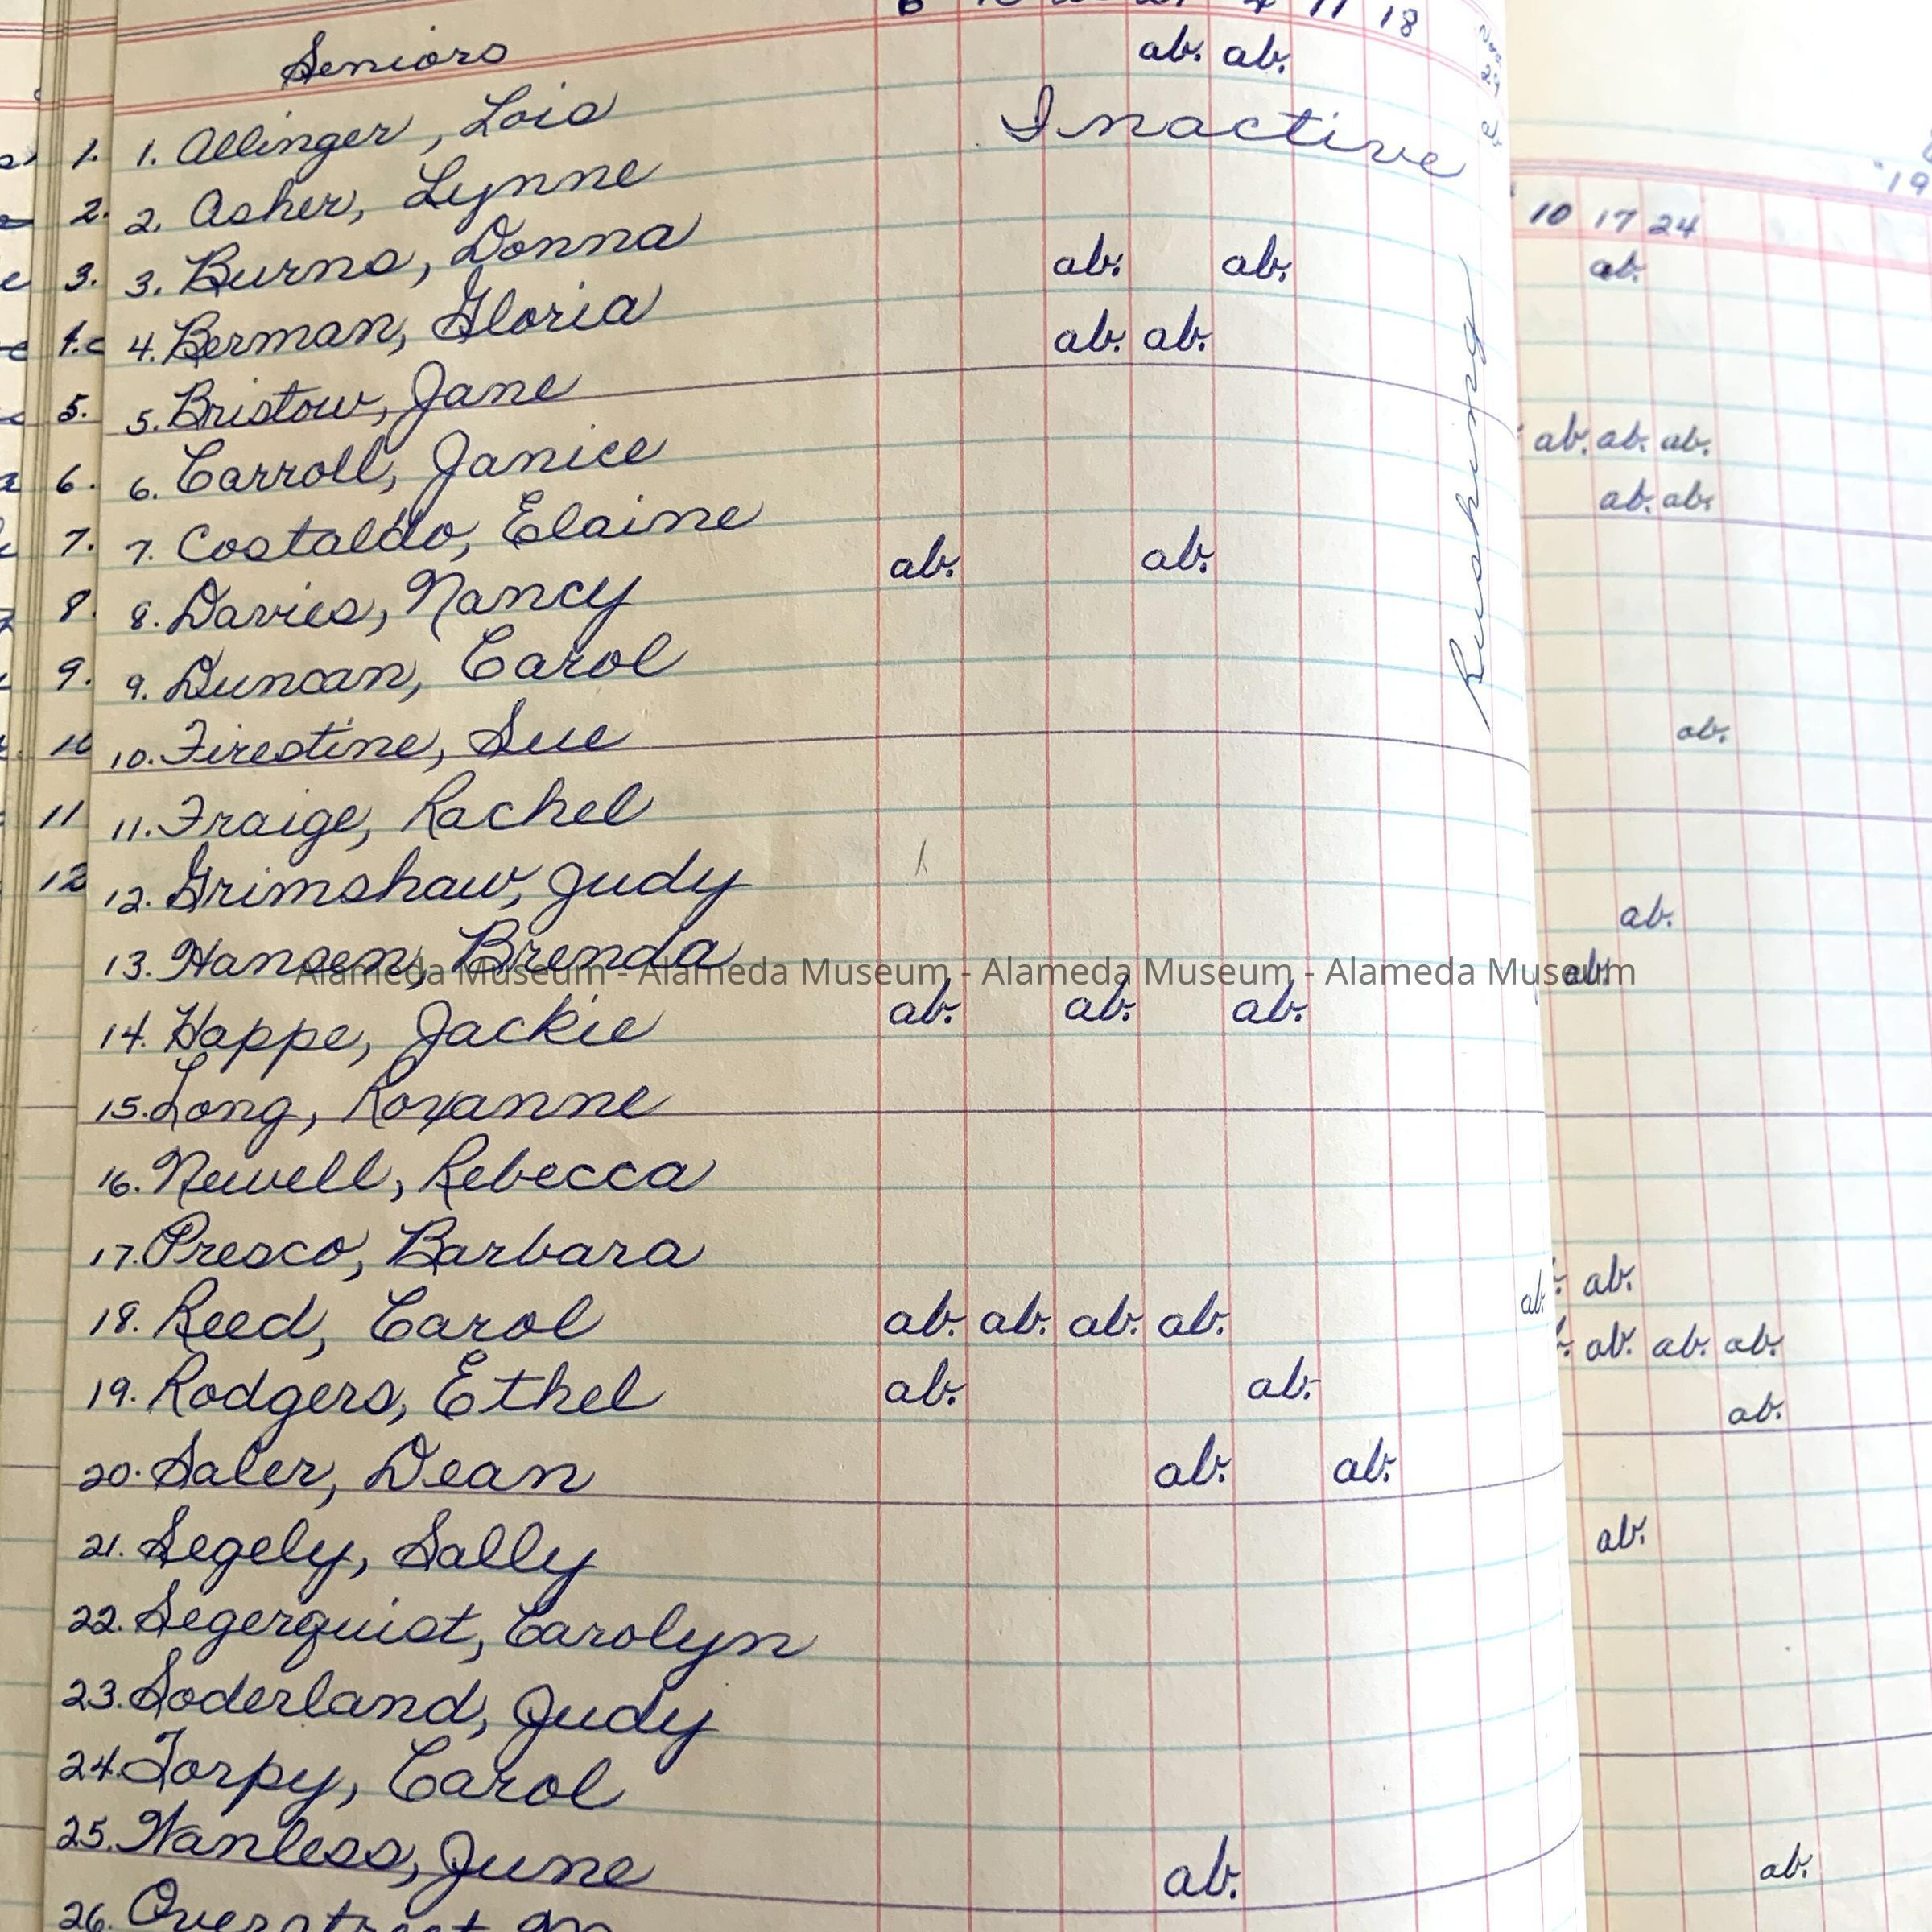 11 18
Seniors ab. ab.
1. 1. Allinger, Lois Inactive
2. 2. Asher, Lynne
3. 3. Burns, Donna ab. ab.
4. Berman, Gloria ab. ab.
5. 5. Bristow, Jane
6. 6. Carroll, Janice
7. 7. Costaldo, Elaine ab. ab.
8. 8. Davies, Nancy
9. 9. Duncan, Carol
10 10. Firestine, Sue
11 11. Fraige, Rachel
12 12. Grimshaw, Judy
13. Hansen, Brenda
14. Happe, Jackie ab. ab. ab.
15. Long, Roxanne
16. Newell, Rebecca
17. Presco, Barbara
18. Reed, Carol ab. ab. ab. ab. ab.
19. Rodgers, Ethel ab. ab.
20. Saler, Dean ab. ab.
21. Segely, Sally
22. Segerquist, Carolyn
23. Soderland, Judy
24. Torpy, Carol
25. Wanless, June ab.
26. Overstreet
Rushing
'19
10 17 24
ab.
ab. ab. ab.
ab. ab.
ab.
ab.
ab.
ab.
ab. ab. ab.
ab.
ab.
ab.
Alameda Museum - Alameda Museum - Alameda Museum - Alameda Museum